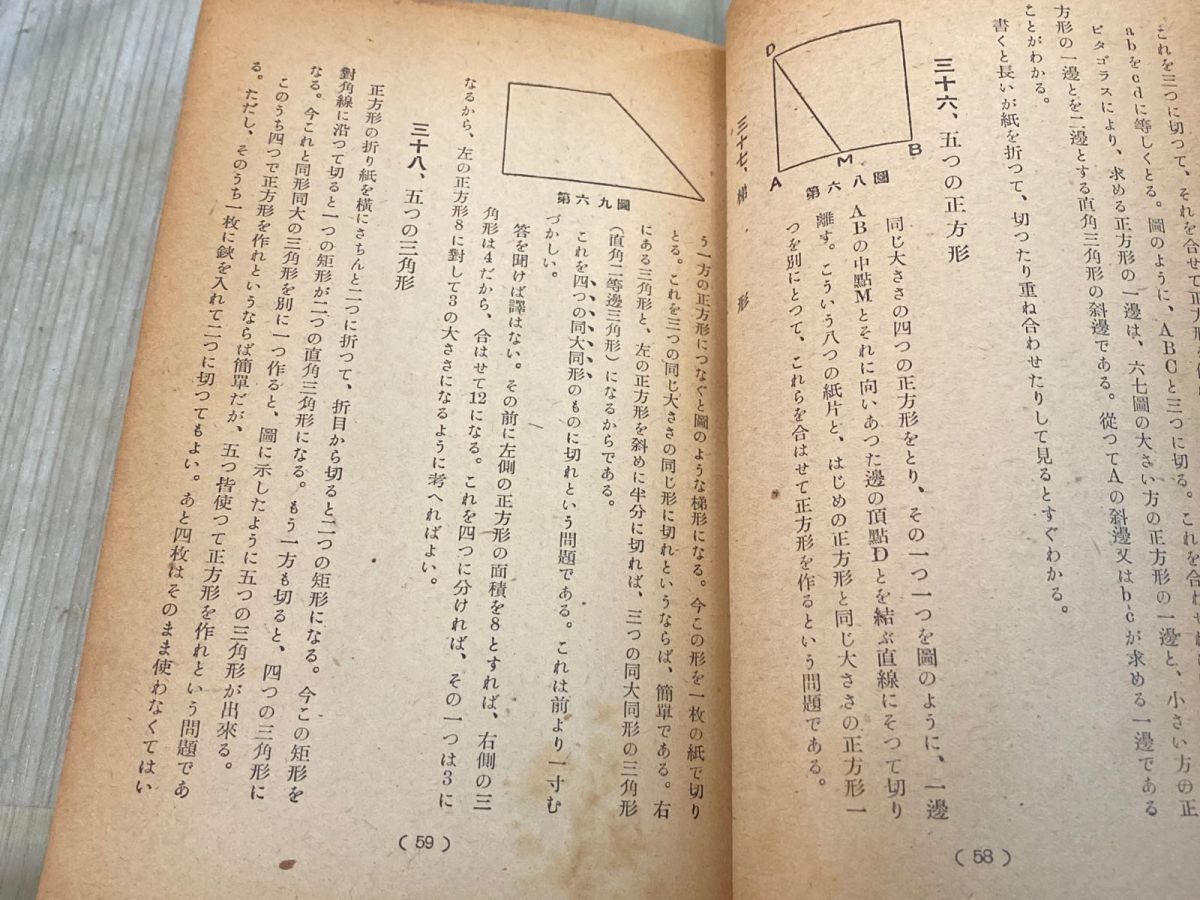 これを三つに切って、それを合せて正方形を
abをcdに等しくとる。圖のように、ABCと三つに切る。これを合わせ
ピタゴラスにより、求める正方形の一邊は、六七圖の大きい方の正方形の一邊と、小さい方の正
方形の一邊とを二邊とする直角三角形の斜邊である。從つてAの斜邊又はb-cが求める一邊である
ことがわかる。
書くと長いが紙を折つて、切つたり重ね合わせたりして見るとすぐわかる。
三十六、五つの正方形
D
A
M
B
第六八圖
同じ大きさの四つの正方形をとり、その一つ一つを圖のように、一邊
ABの中點Mとそれに向いあつた邊の頂點Dとを結ぶ直線にそつて切り
離す。こういう八つの紙片と、はじめの正方形と同じ大きさの正方形一
つを別にとつて、これらを合はせて正方形を作るという問題である。
三十七、梯形
(58)
第六九圖
う一方の正方形につなぐと圖のような梯形になる。今この形を一枚の紙で切り
とる。これを三つの同じ大きさの同じ形に切れというならば、簡單である。右
にある三角形と、左の正方形を斜めに半分に切れば、三つの同大同形の三角形
(直角二等邊三角形)になるからである。
これを四つの同大同形のものに切れという問題である。これは前より一寸む
づかしい。
答を聞けば譯はない。その前に左側の正方形の面積を8とすれば、右側の三
角形は4だから、合はせて12になる。これを四つに分ければ、その一つは3に
なるから、左の正方形8に對して3の大きさになるように考へればよい。
三十八、五つの三角形
正方形の折り紙を横にきちんと二つに折つて、折目から切ると二つの矩形になる。今この矩形を
對角線に沿つて切ると一つの矩形が二つの直角三角形になる。もう一方も切ると、四つの三角形に
なる。今これと同形同大の三角形を別に一つ作ると、圖に示したように五つの三角形が出來る。
このうち四つで正方形を作れというならば簡單だが、五つ皆使つて正方形を作れという問題であ
る。ただし、そのうち一枚に鋏を入れて二つに切つてもよい。あと四枚はそのまま使わなくてはい
(59)